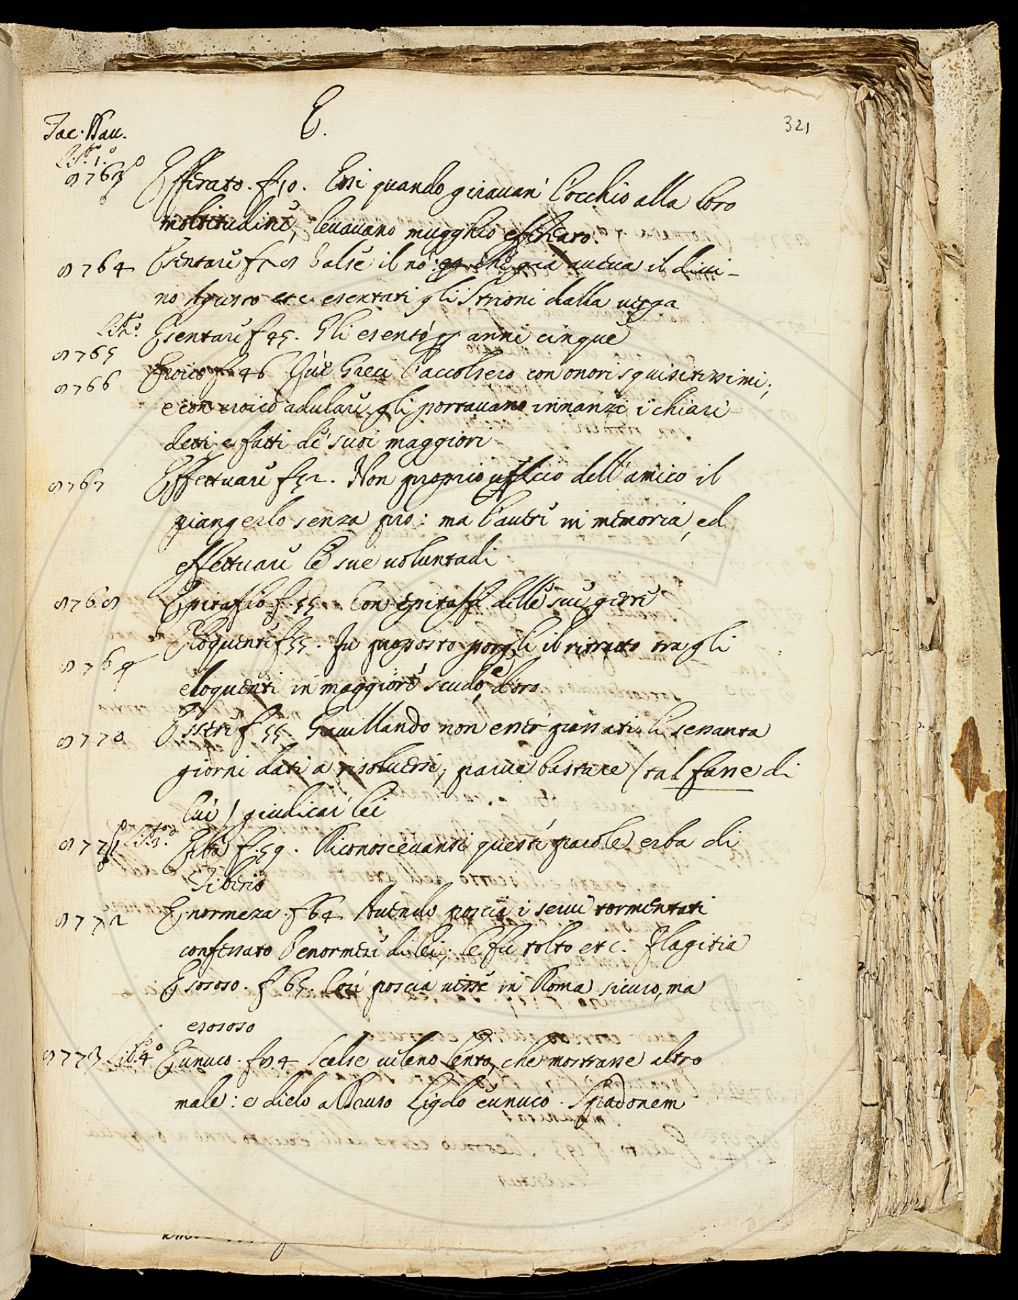 E.
321
Tac. Dau.
Lib.° 1.°
8763 Efferato. f 10. Essi quando giravan' l'occhio alla loro
moltitudine, levavano mugghio efferato.
8764 Esentare f 28 Valse il no: che già aveva il divi-
no Agusto etc. esentati gli Strioni dalla verga
Lib. 2.°
8765 Esentare f 45. Gli esentò p anni cinque
8766 Eroico f 46 Que' Greci l'accolsero con onori squisitissimi;
e con eroico adulare gli portavano innanzi i chiari
detti e fatti de' suoi maggiori
8767 Effettuare f 52. Non proprio uficio dell'amico il
piangerlo senza prò: ma l'avere in memoria, ed
effettuare le sue voluntadi
8768 Epitaffio f. 55 Con epitaffi delle sue geste
8769 Eloquente f 55. Fu proposto porgli il ritratto tra gli
eloquenti in maggiore scudo, e d'oro
8770 Essere f 55 Gavillando non esser passati li sessanta
giorni dati a risolversi, parve bastare (tal fasse di
lui) giudicar lei
8771 Lib. 3.° Erba f. 59. Riconoscevansi queste parole erba di
Tiberio
8772 Enormezza. f 64 Avendo poscia i servi tormentati
confessato l'enormezze di lei, le fu tolto etc. Flagitia
Esoso. f 65. Così poscia visse in Roma sicuro, ma
esososo
8773 Lib. 4.° Eunuco. f 84 Scelse veleno lento, che mostrasse altro
male: e dielo a Druso Ligdo eunuco. Spadonem